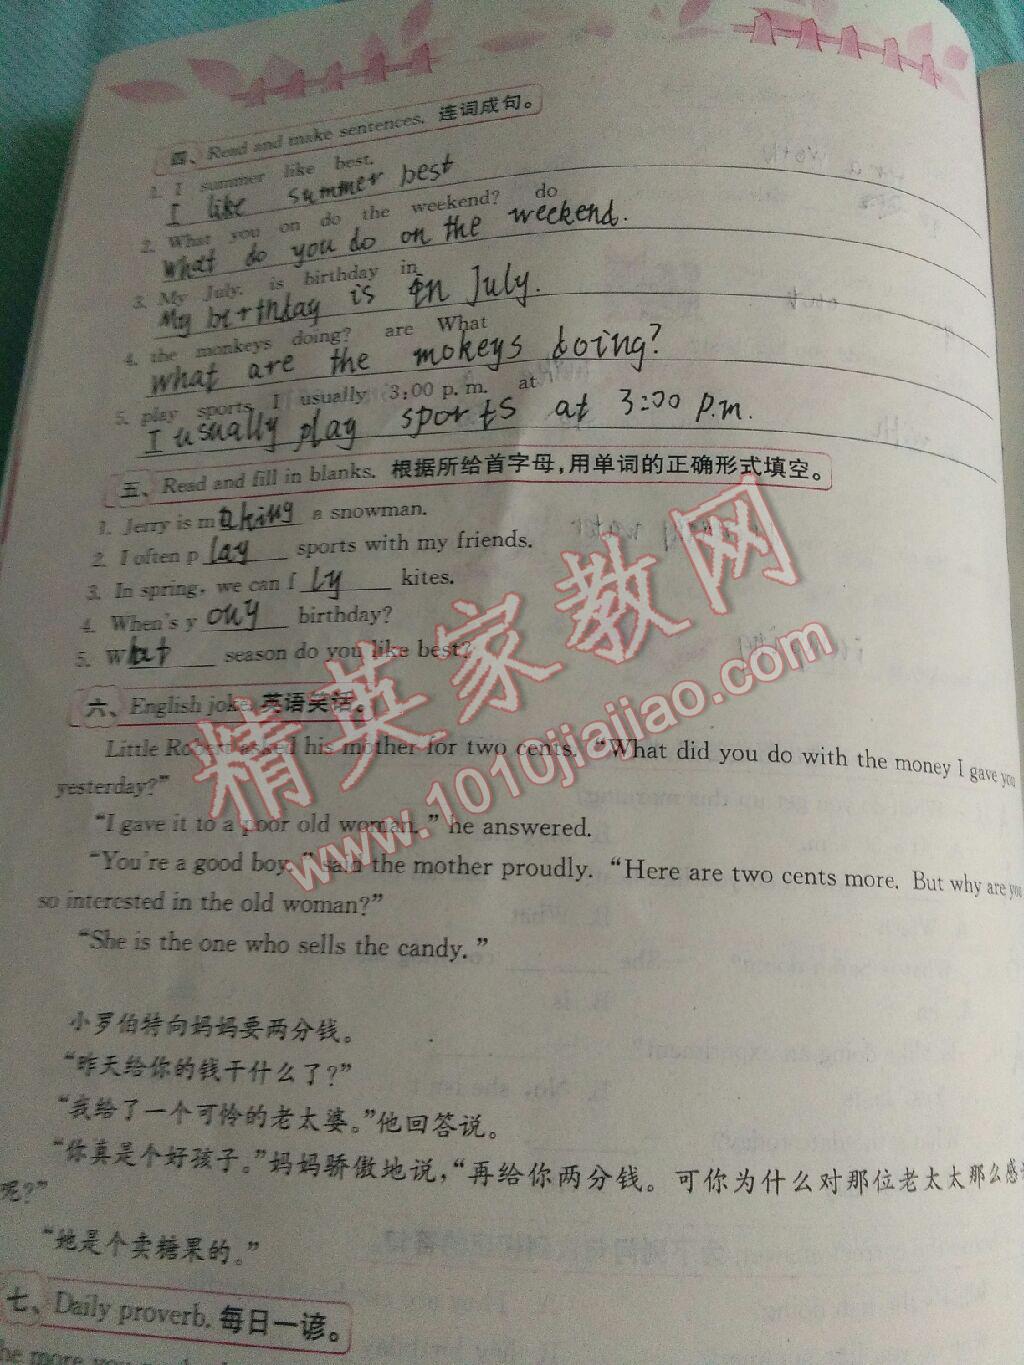 四、Read and make sentences. 连词成句。
1. I summer like best.
I like summer best
2. What you on do the weekend? do
What do you do on the weekend.
3. My July. is birthday in
My birthday is in July.
4. the monkeys doing? are What
What are the mokeys doing?
5. play sports I usually 3:00 p. m. at
I usually play sports at 3:00 p.m.
五、Read and fill in blanks. 根据所给首字母,用单词的正确形式填空。
1. Jerry is making a snowman.
2. I often play sports with my friends.
3. In spring, we can fly kites.
4. When's y ouy birthday?
5. What season do you like best?
六、English joke. 英语笑话。
Little Robert asked his mother for two cents. “What did you do with the money I gave you
yesterday?”
“I gave it to a poor old woman. ” he answered.
“You're a good boy. ” said the mother proudly. “Here are two cents more. But why are you
so interested in the old woman?”
“She is the one who sells the candy. ”
小罗伯特向妈妈要两分钱。
“昨天给你的钱干什么了?”
“我给了一个可怜的老太婆。”他回答说。
“你真是个好孩子。”妈妈骄傲地说,“再给你两分钱。可你为什么对那位老太太那么感
呢?”
“她是个卖糖果的。”
七、Daily proverb. 每日一谚。
he more you
精英家教网
www.1010jiajiao.com